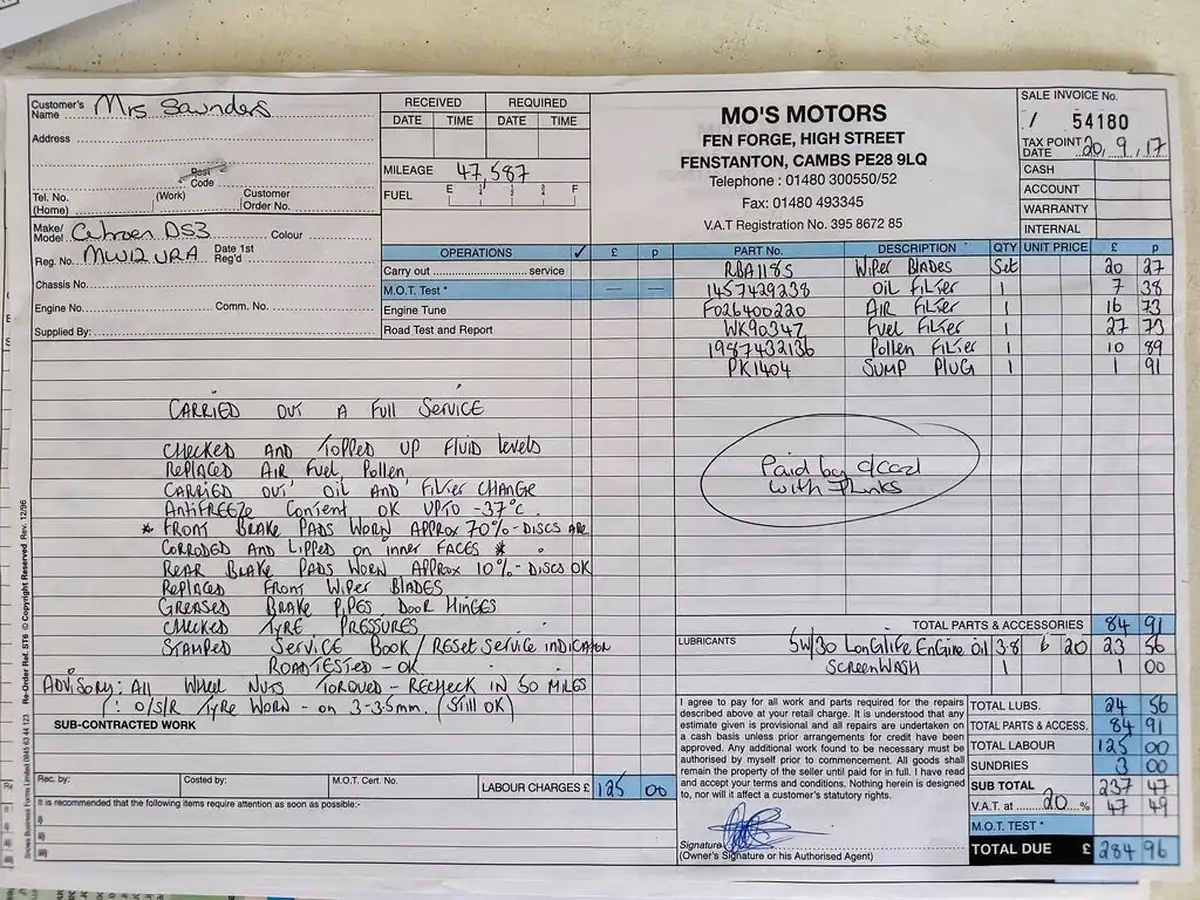 Customer's Name Mrs Saunders
Address
Post Code
Tel. No. (Home) (Work) Customer Order No.
Make/Model Citroen DS3 Colour
Reg. No. MW12 URA Date 1st Reg'd
Chassis No.
Engine No. Comm. No.
Supplied By:
RECEIVED REQUIRED
DATE TIME DATE TIME
MILEAGE 47,587
FUEL E ¼ ½ ¾ F
MO'S MOTORS
FEN FORGE, HIGH STREET
FENSTANTON, CAMBS PE28 9LQ
Telephone : 01480 300550/52
Fax: 01480 493345
V.A.T Registration No. 395 8672 85
SALE INVOICE No.
/ 54180
TAX POINT DATE 20, 9, 17
CASH
ACCOUNT
WARRANTY
INTERNAL
OPERATIONS ✓ £ p
Carry out service
M.O.T. Test * — —
Engine Tune
Road Test and Report
PART No. DESCRIPTION QTY UNIT PRICE £ p
RBA118S WIPER BLADES Set 20 27
1457429238 OIL FILTER 1 7 38
F026400220 AIR FILTER 1 16 73
WK9034Z FUEL FILTER 1 27 73
1987432136 POLLEN FILTER 1 10 89
PK1404 SUMP PLUG 1 1 91
CARRIED OUT A FULL SERVICE
CHECKED AND TOPPED UP FLUID LEVELS
REPLACED AIR FUEL POLLEN
CARRIED OUT OIL AND FILTER CHANGE
ANTIFREEZE CONTENT OK UPTO -37°C.
* FRONT BRAKE PADS WORN APPROX 70% - DISCS ARE
CORRODED AND LIPPED ON INNER FACES *
REAR BRAKE PADS WORN APPROX 10% - DISCS OK
REPLACED FRONT WIPER BLADES
GREASED BRAKE PIPES, DOOR HINGES
CHECKED TYRE PRESSURES
STAMPED SERVICE BOOK / RESET SERVICE INDICATOR
ROADTESTED - OK
ADVISORY: ALL WHEEL NUTS TORQUED - RECHECK IN 50 MILES
: O/S/R TYRE WORN - ON 3-3.5mm. (STILL OK)
Paid by d card
with thanks
SUB-CONTRACTED WORK
Rec. by: Costed by: M.O.T. Cert. No. LABOUR CHARGES £ 125 00
It is recommended that the following items require attention as soon as possible:-
TOTAL PARTS & ACCESSORIES 84 91
LUBRICANTS 5W/30 LONGLIFE ENGINE OIL 3.8 6 20 23 56
SCREENWASH 1 1 00
I agree to pay for all work and parts required for the repairs
described above at your retail charge. It is understood that any
estimate given is provisional and all repairs are undertaken on
a cash basis unless prior arrangements for credit have been
approved. Any additional work found to be necessary must be
authorised by myself prior to commencement. All goods shall
remain the property of the seller until paid for in full. I have read
and accept your terms and conditions. Nothing herein is designed
to, nor will it affect a customer's statutory rights.
Signature
(Owner's Signature or his Authorised Agent)
TOTAL LUBS. 24 56
TOTAL PARTS & ACCESS. 84 91
TOTAL LABOUR 125 00
SUNDRIES 3 00
SUB TOTAL 237 47
V.A.T. at 20 % 47 49
M.O.T. TEST *
TOTAL DUE £ 284 96
Shows Business Forms Limited 0845 63 44 123 Re-Order Ref. ST6 © Copyright Reserved Rev. 12/96